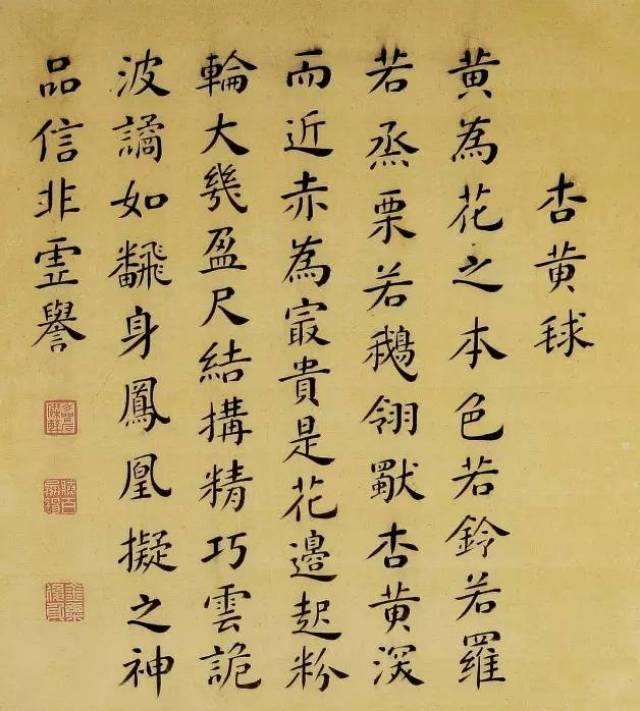 杏黄球
黄為花之本色若鈴若羅
若烝栗若鵝翎杏黄深
而近赤為㝡貴是花邊起粉
輪大幾盈尺結搆精巧雲詭
波譎如飜身鳳凰擬之神
品信非虚譽